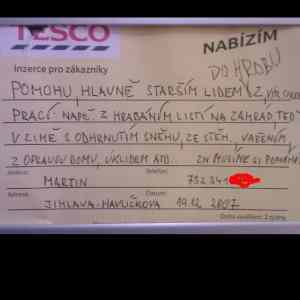 TESCO
NABÍZÍM
Inzerce pro zákazníky
DO HROBU
POMOHU, HLAVNĚ STARŠÍM LIDEM Z,
PRACÍ. NAPŘ. Z HRABÁNÍM LISTÍ NA ZAHRAD, TEĎ
V ZIMĚ S ODHRNUTÍM SNĚHU, ZE STĚH, VAŘENÍM,
Z OPRAVOU DOMU, ÚKLIDEM ATD. ZN MUSÍME SI POMÁHAT
Jméno: Telefon:
MARTIN 732 341
Adresa: Datum:
JIHLAVA-HAVLÍČKOVA 19.12. 2007
Doba vyvěšení: 2 týdny